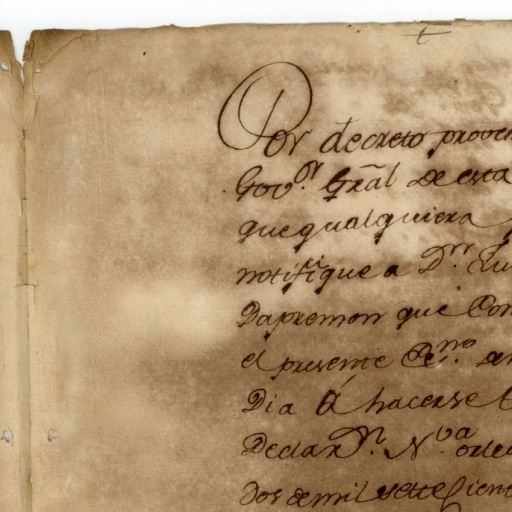 Por decreto prove
Gov.or Grāl de esta
que qualquiera
notifique a Dn.
Dapremon que Con
el presente
Dia â hacerse
Declar.n N.va orle
dos de mil sette Cient